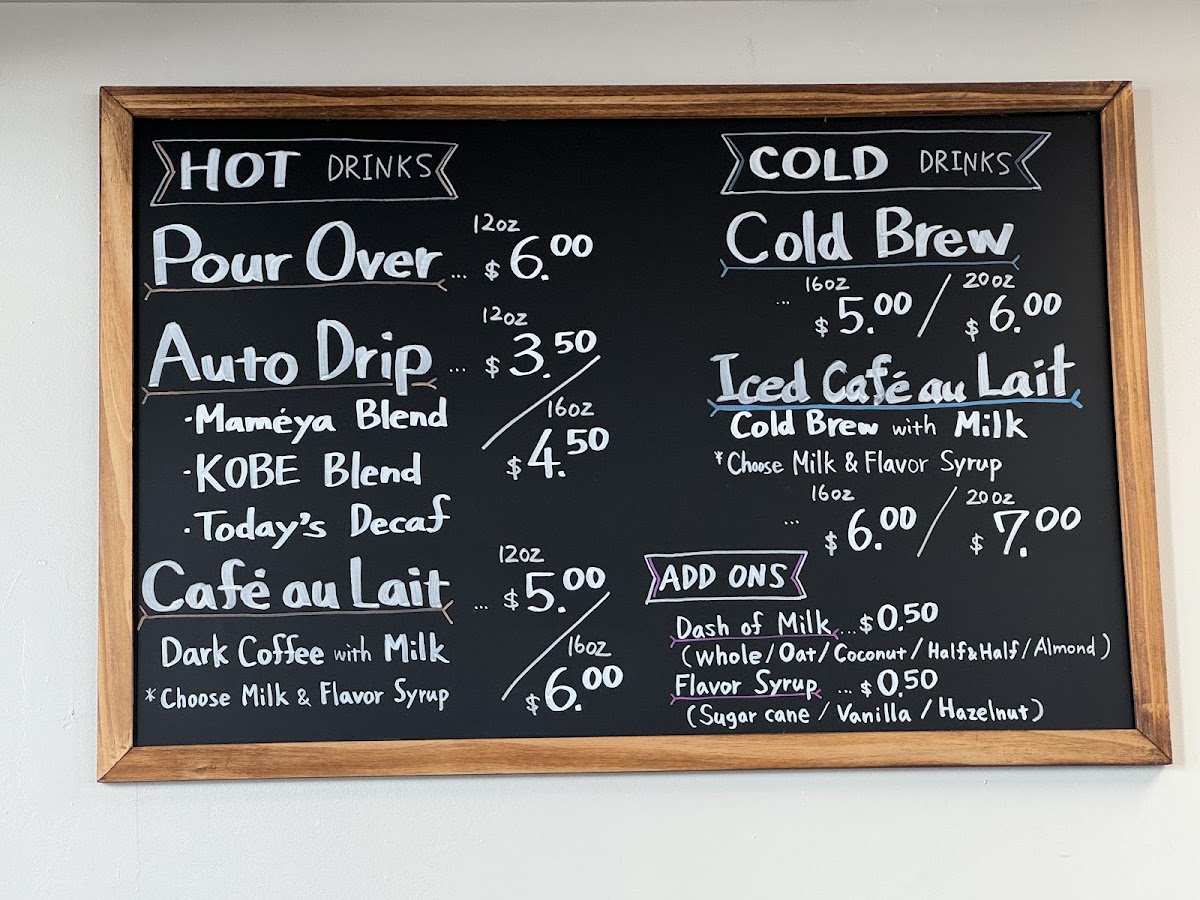 HOT DRINKS
Pour Over ... 12oz $6.00
Auto Drip ... 12oz $3.50 / 16oz $4.50
·Maméya Blend
·KOBE Blend
·Today's Decaf
Café au Lait ... 12oz $5.00 / 16oz $6.00
Dark Coffee with Milk
*Choose Milk & Flavor Syrup
COLD DRINKS
Cold Brew
... 16oz $5.00 / 20oz $6.00
Iced Café au Lait
Cold Brew with Milk
*Choose Milk & Flavor Syrup
... 16oz $6.00 / 20oz $7.00
ADD ONS
Dash of Milk ... $0.50
(Whole / Oat / Coconut / Half&Half / Almond)
Flavor Syrup ... $0.50
(Sugar cane / Vanilla / Hazelnut)